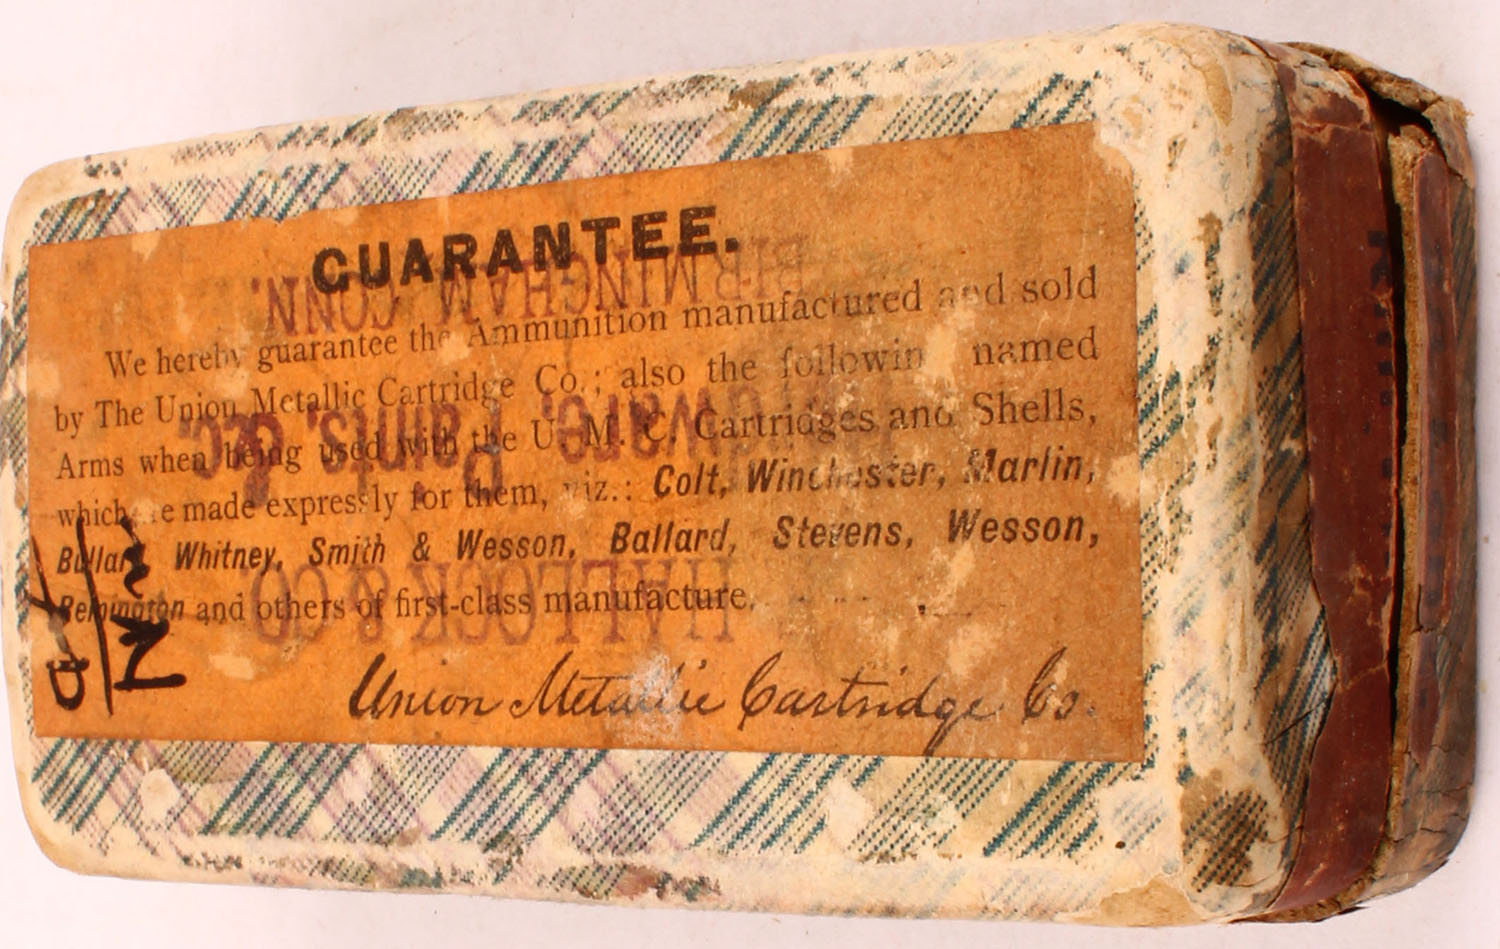 GUARANTEE.
We hereby guarantee the Ammunition manufactured and sold
by The Union Metallic Cartridge Co.; also the following named
Arms when being used with the U. M. C. Cartridges and Shells,
which are made expressly for them, viz.: Colt, Winchester, Marlin,
Bullard, Whitney, Smith & Wesson, Ballard, Stevens, Wesson,
Remington and others of first-class manufacture.
Union Metallic Cartridge Co.
HALLOCK & CO.
Hardware, Paints, &c.
BIRMINGHAM CONN.